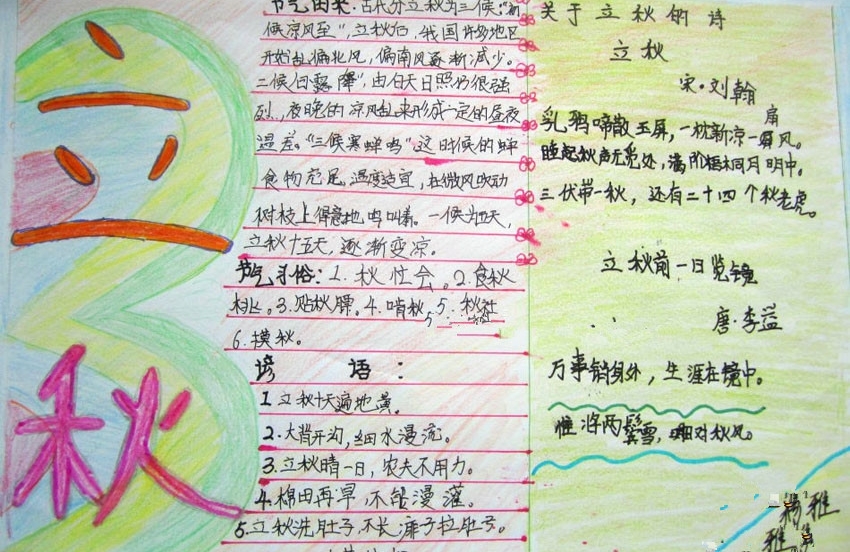 立
秋
节气由来:古代分立秋为三候:"初
候凉风至",立秋后,我国许多地区
开始乱偏北风,偏南风逐渐减少。
二候白露降",由白天日照仍很强
烈,夜晚的凉风乱来形成一定的昼夜
温差。"三候寒蝉鸣"这时候的蝉
食物充足。温度适宜,在微风吹动
树枝上得意地鸣叫着。一候为五天,
立秋十五天,逐渐变凉。
节气习俗:1.秋忙会。2.食秋
桃。3.贴秋膘。4.啃秋
5.秋社
6.摸秋。
谚语:
1立秋十天遍地黄。
2.大背开沟,细水漫流。
3.立秋晴一日,农夫不用力。
4.棉田再旱,不能漫灌。
5.立秋洗肚子,不长痱子拉肚子。
关于立秋的诗
立秋
宋·刘翰
乳鸦啼散玉屏,一枕新凉一扇风。
睡起秋声无觅处,满阶梧桐月明中。
三伏带一秋,还有二十四个秋老虎。
立秋前一日览镜
唐·李益
万事销身外,生涯在镜中。
惟将两鬓雪,相对秋风。